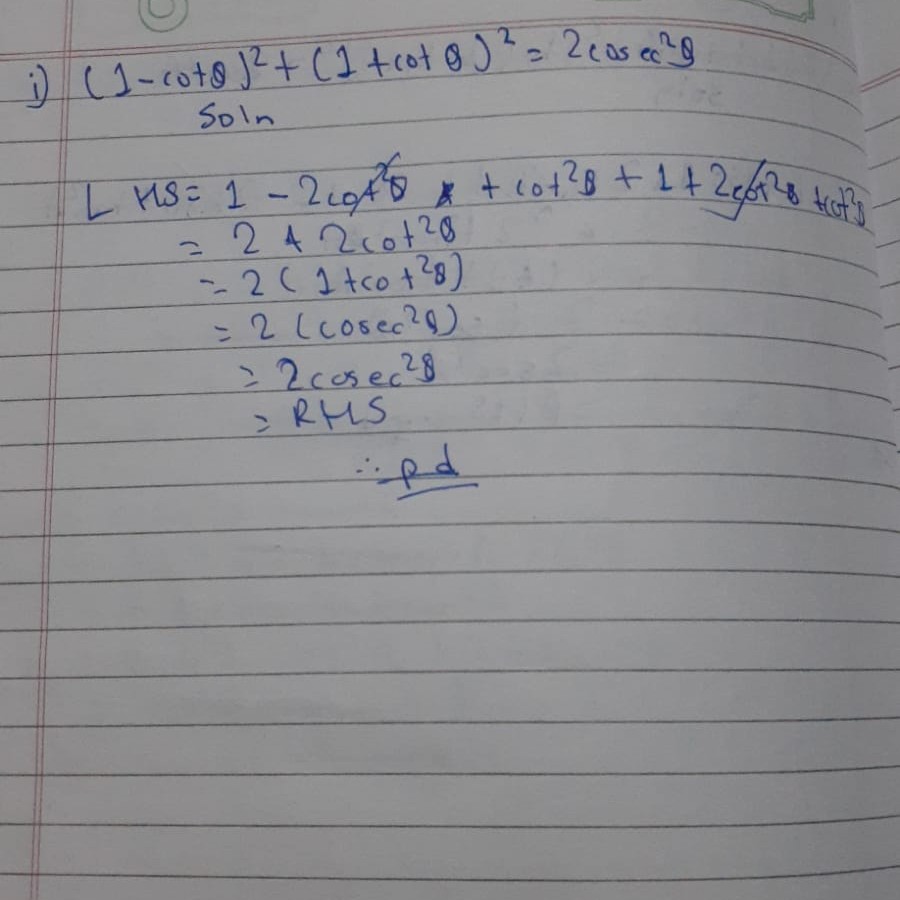 i) (1-cotθ)²+(1+cotθ)²=2cosec²θ
Soln
LHS= 1 - 2cot²θ + cot²θ + 1 + 2cot²θ +cot²θ
= 2 + 2cot²θ
= 2(1+cot²θ)
= 2(cosec²θ)
= 2cosec²θ
= RHS
∴ pd